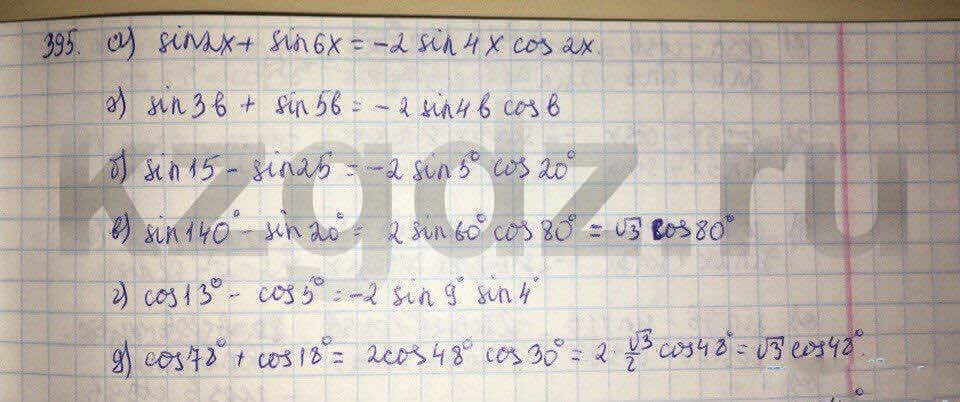 395. а) sin2x + sin6x = -2 sin4x cos2x
г) sin3b + sin5b = -2 sin4b cosb
б) sin15 - sin25 = -2 sin5° cos20°
в) sin140° - sin20° = 2 sin60° cos80° = √3 cos80°
г) cos13° - cos5° = -2 sin9° sin4°
д) cos78° + cos18° = 2cos48° cos30° = 2 · √3/2 cos48° = √3 cos48°
kzgdz.ru